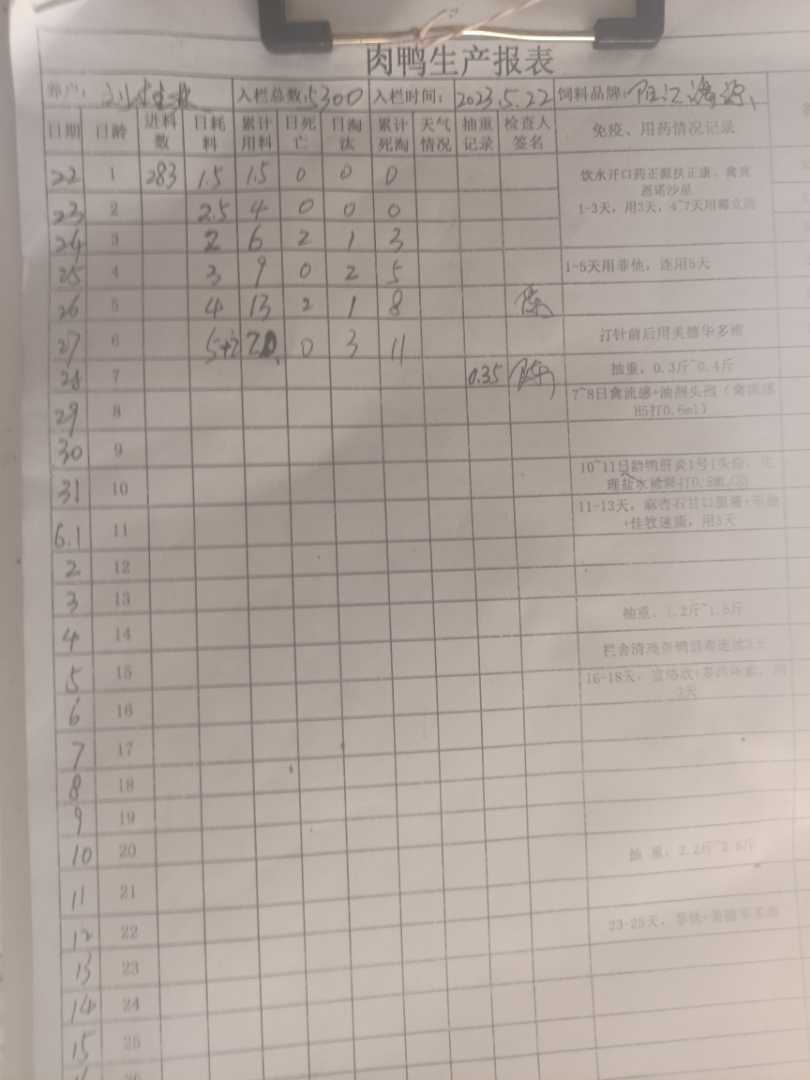 肉鸭生产报表
养户: 入栏总数: 5300 入栏时间: 2023.5.22 饲料品牌: 阳江
日期 日龄 进料数 日耗料 累计用料 日死亡 日淘汰 累计死淘 天气情况 抽重记录 检查人签名 免疫、用药情况记录
22 1 283 1.5 1.5 0 0 0 饮水开口药正源扶正康、禽
恩诺沙星
23 2 2.5 4 0 0 0 1-3天, 用3天, 4~7天用
24 3 2 6 2 1 3
25 4 3 9 0 2 5 1-5天用菲他, 连用5天
26 5 4 13 2 1 8 陈
27 6 5+2 20 0 3 11 打针前后用美德华多维
28 7 0.35 抽重, 0.3斤~0.4斤
29 8 7~8日禽流感+油剂头孢(禽流感
H5打0.6ml)
30 9
31 10 10~11日龄鸭肝炎1号1头份,
理盐水稀释打
6.1 11 11-13天, 麻杏石甘口服液+
+佳牧速、用3天
2 12
3 13 抽重, 1.2斤~1.5斤
4 14
5 15 栏舍清
6 16 16-18天,
3天
7 17
8 18
9 19
10 20 抽 重, 2.2斤~2.5斤
11 21
12 22 23-25天, 菲他+美德华多维
13 23
14 24
15 25
26